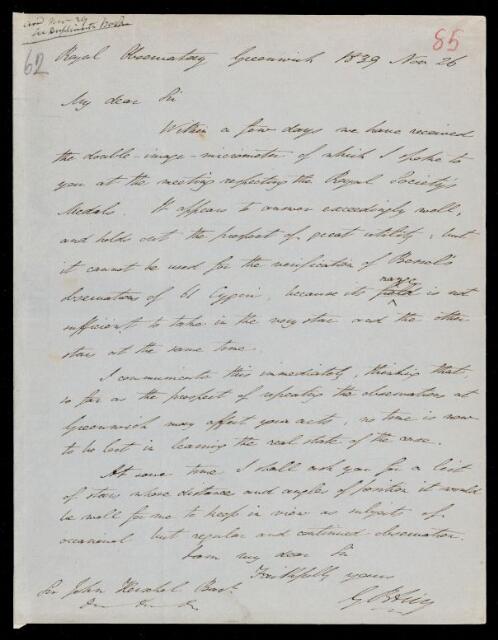 and Nov 29
in Duplicate Book
62
85
Royal Observatory Greenwich 1839 Nov 26
My dear Sir
Within a few days we have received
the double-image-micrometer of which I spoke to
you at the meeting respecting the Royal Society's
Medals. It appears to answer exceedingly well,
and holds out the prospect of great utility, but
it cannot be used for the verification of Bessel's
range
observations of 61 Cygni, because its field is not
sufficient to take in the very star and the other
stars at the same time.
I communicate this immediately, thinking that,
so far as the prospect of repeating the observations at
Greenwich may affect your acts, no time is now
to be lost in learning the real state of the case.
At some time I shall ask you for a list
of stars whose distance and angles of position it would
be well for me to keep in view as subjects of
occasional but regular and continued observation.
I am my dear Sir
Faithfully yours
G B Airy
Sir John Herschel Bart